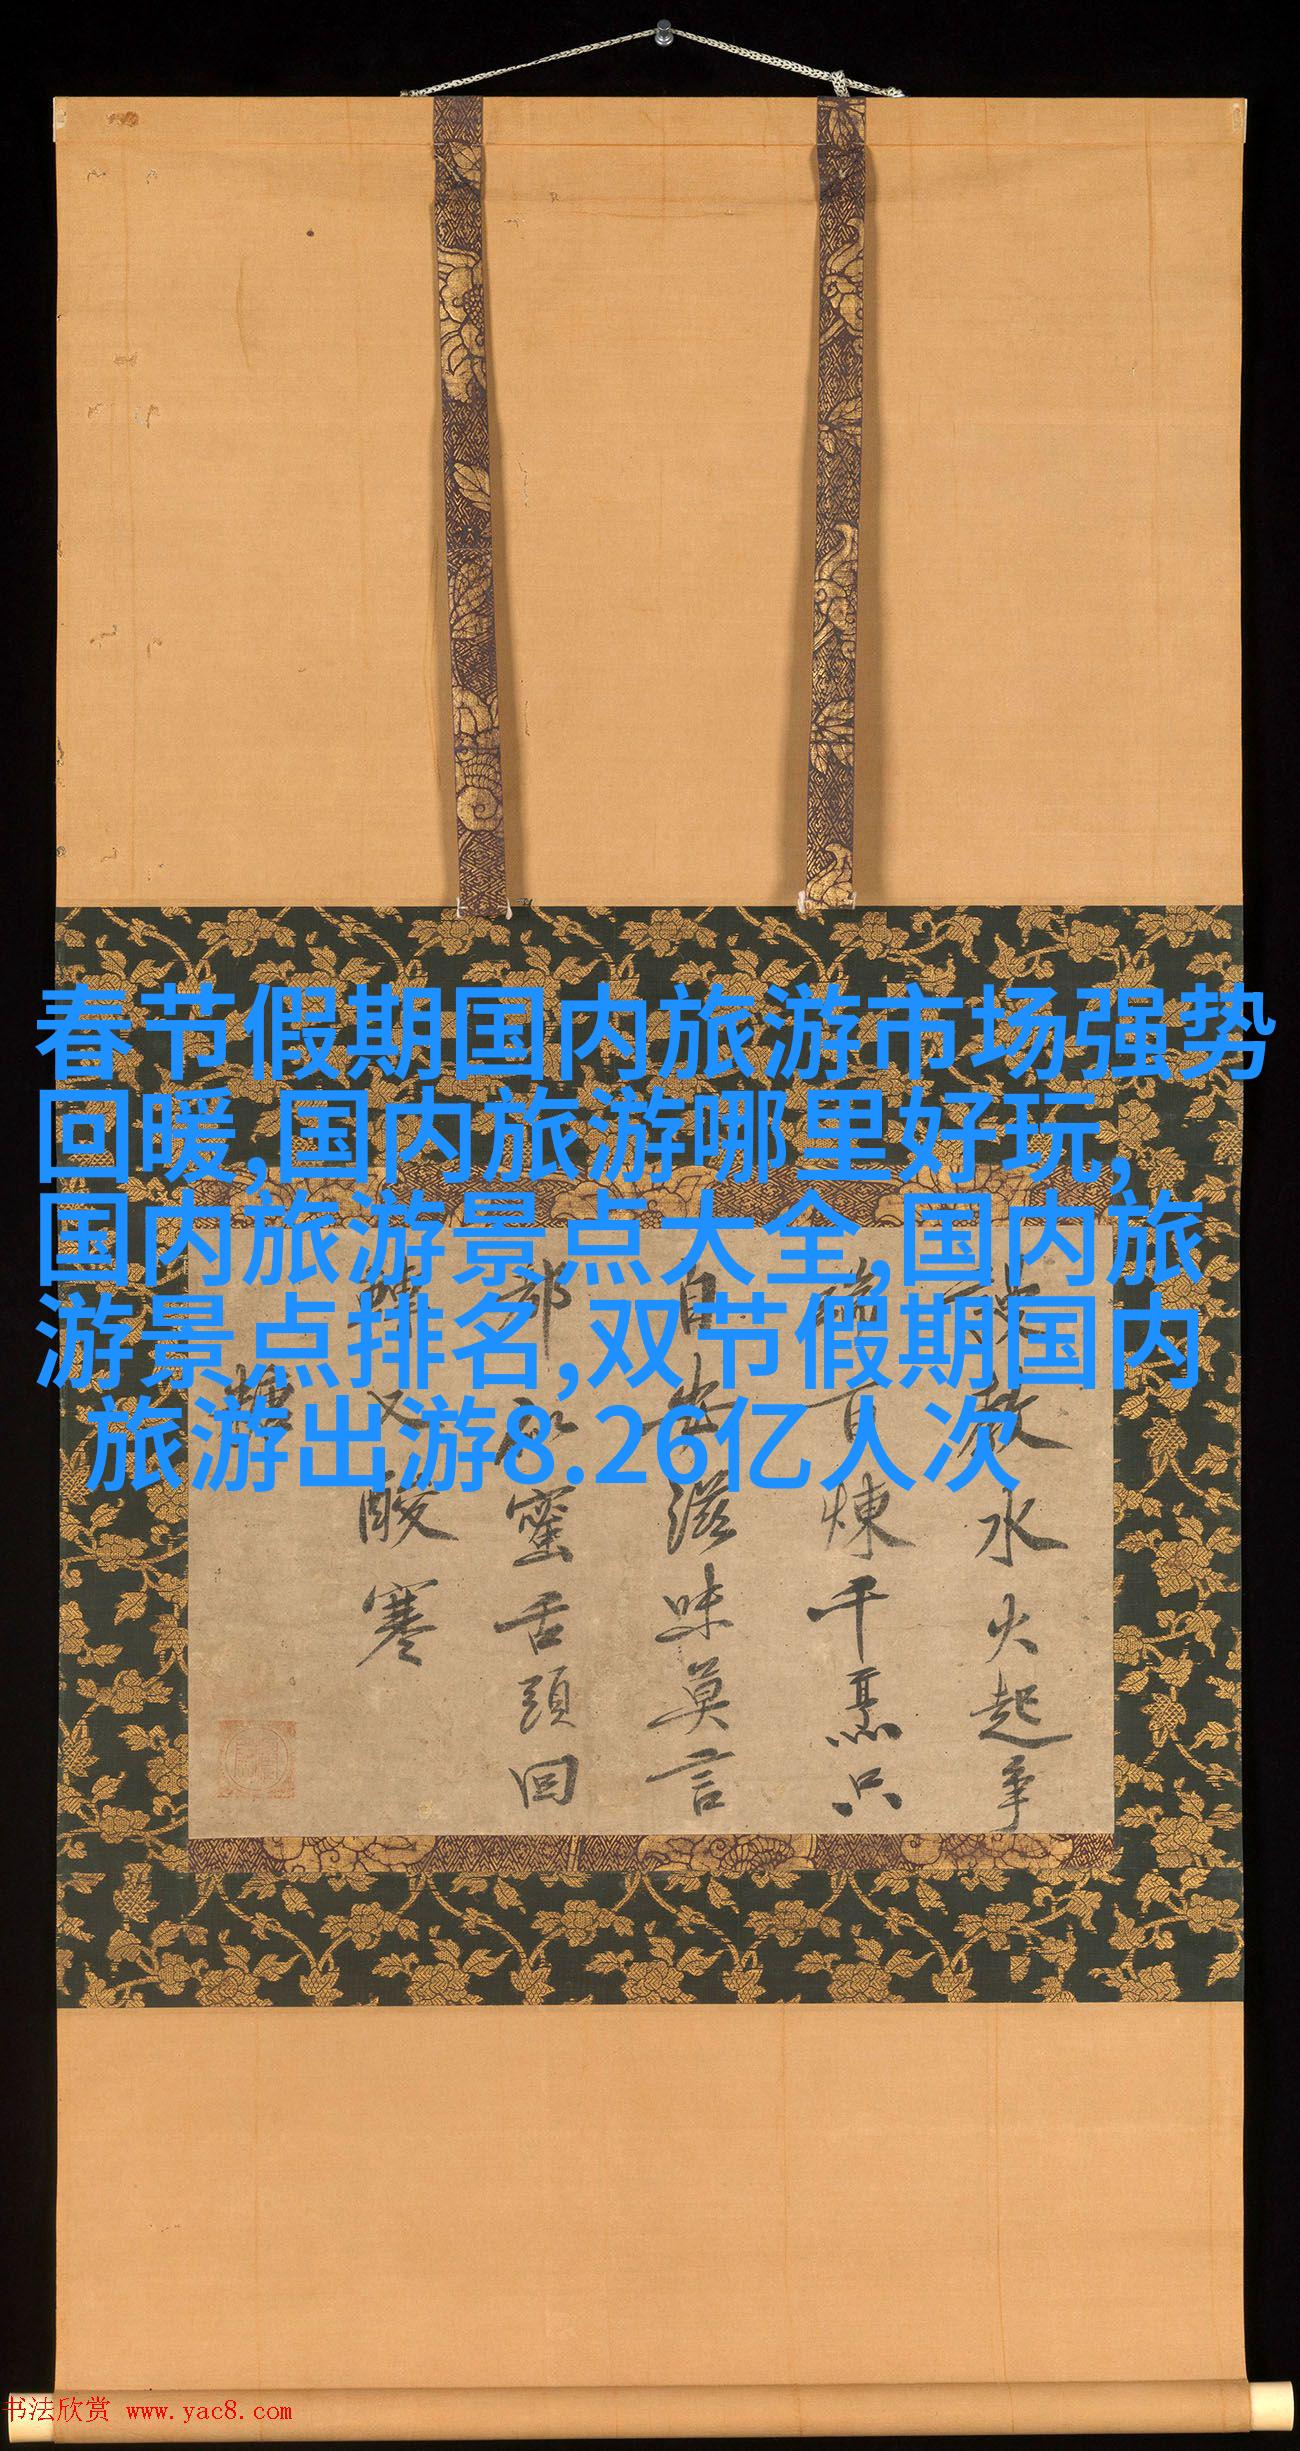 春节假期国内旅游市场强势
回暖,国内旅游哪里好玩,
国内旅游景点大全,国内旅
游景点排名,双节假期国内
旅游出游8.26亿人次
水火起争
煉千烹只
滋味莫言
蜜舌頭回
又酸寒
书法欣赏 www.yac8.com